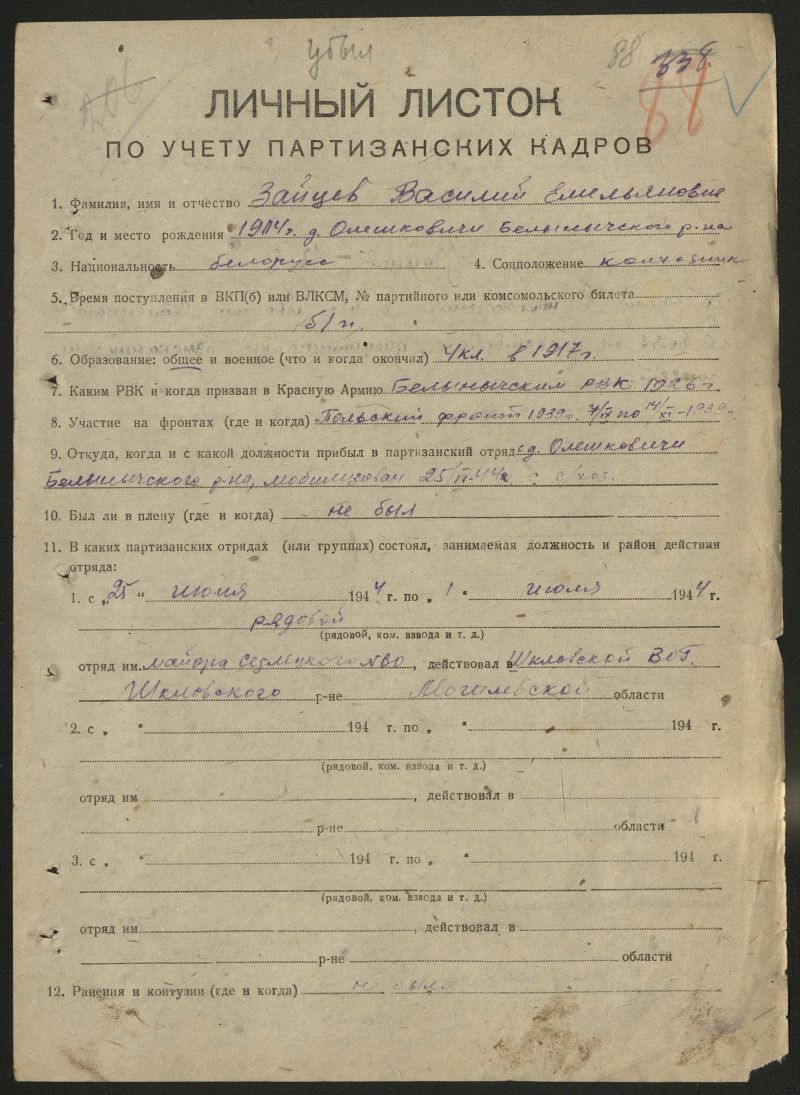 убыл
88
338.
88
206
ЛИЧНЫЙ ЛИСТОК
ПО УЧЕТУ ПАРТИЗАНСКИХ КАДРОВ
1. Фамилия, имя и отчество Зайцев Василий Емельянович
2. Год и место рождения 1904г. д. Олешковичи Белыничского р-на
3. Национальность белорусс 4. Соцположение колхозник
5. Время поступления в ВКП(б) или ВЛКСМ, № партийного или комсомольского билета
б/п.
6. Образование: общее и военное (что и когда окончил) 4кл. в 1917г.
7. Каким РВК и когда призван в Красную Армию Белыничским РВК 1926г
8. Участие на фронтах (где и когда) Польский фронт 1939г. 7/IX по 14/XI-1939г.
9. Откуда, когда и с какой должности прибыл в партизанский отряд д. Олешковичи
Белыничского р-на, мобилизован 25/ 44г с/хоз.
10. Был ли в плену (где и когда) не был
11. В каких партизанских отрядах (или группах) состоял, занимаемая должность и район действия
отряда:
1. с „25 “ июня 1944 г. по „ 1 “ июля 1944 г.
рядовой
(рядовой, ком. взвода и т. д.)
отряд им. майора №30, действовал в Шкловской ВОГ.
Шкловского р-не Могилевской области
2. с „ “ 194 г. по „ “ 194 г.
(рядовой, ком. взвода и т. д.)
отряд им , действовал в
р-не области
3. с „ “ 194 г. по „ “ 194 г.
(рядовой, ком. взвода и т. д.)
отряд им. , действовал в
р-не области
12. Ранения и контузии (где и когда) не было